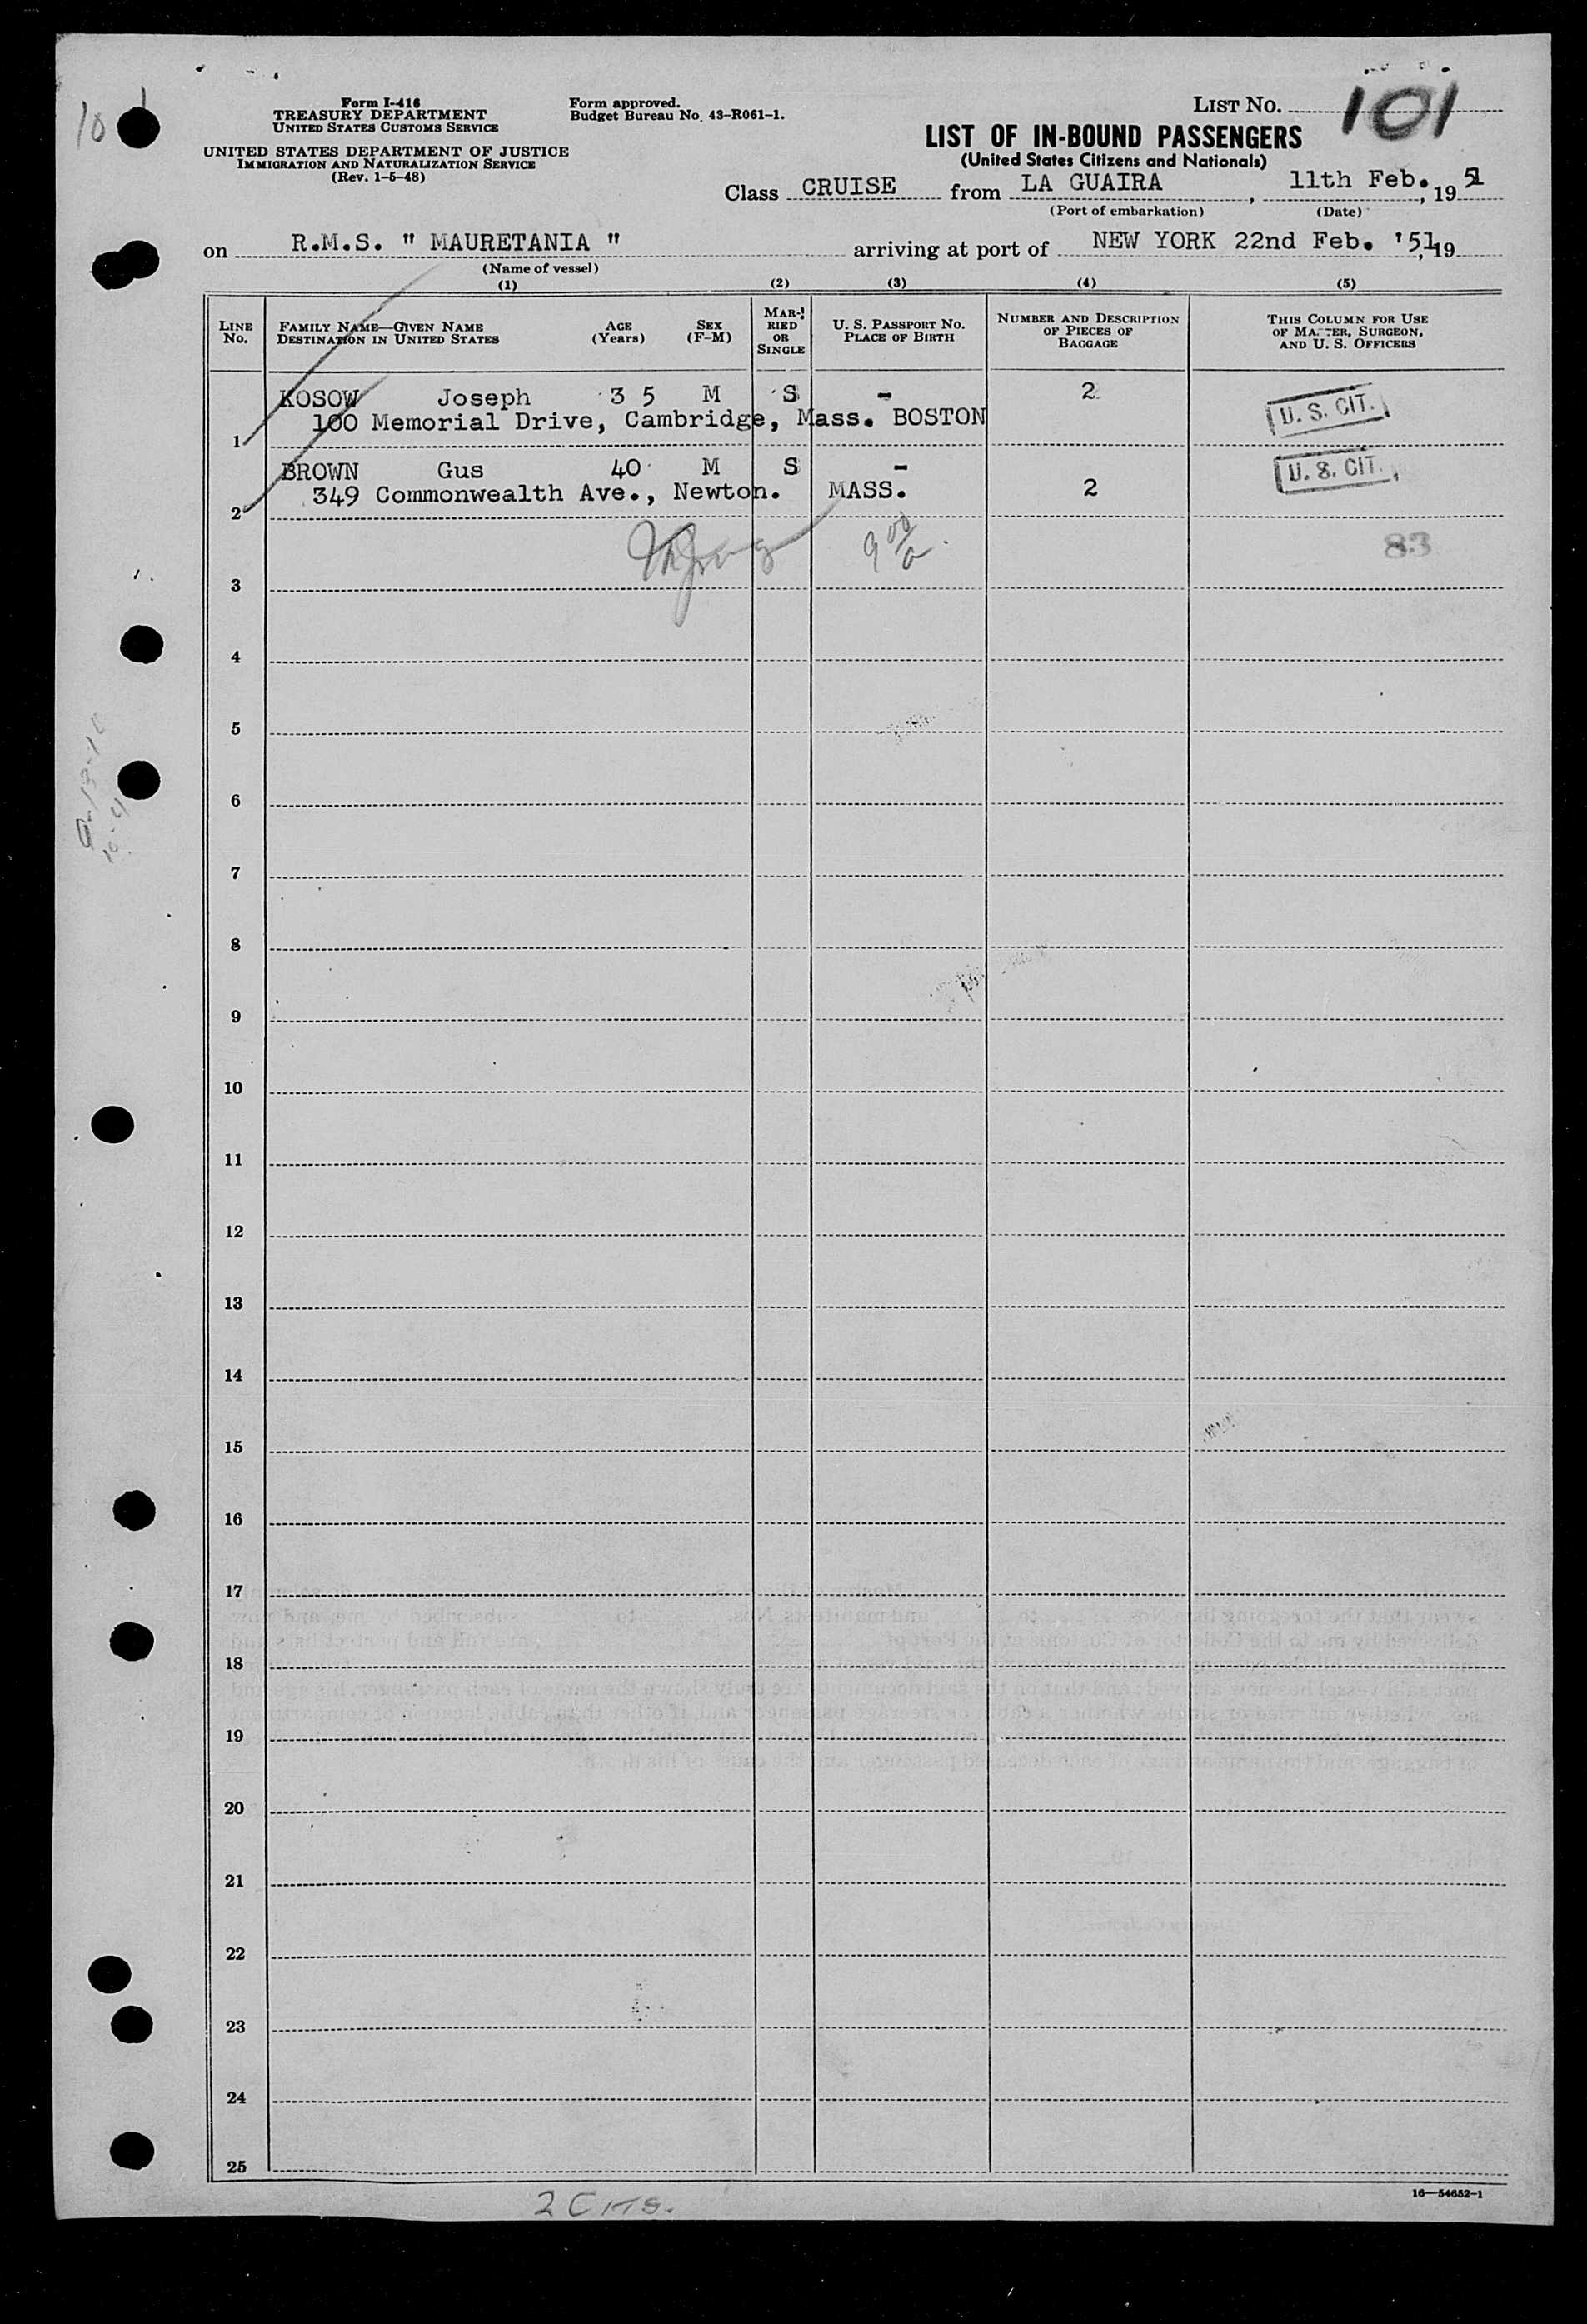 101
Form I-416
TREASURY DEPARTMENT
UNITED STATES CUSTOMS SERVICE
UNITED STATES DEPARTMENT OF JUSTICE
IMMIGRATION AND NATURALIZATION SERVICE
(Rev. 1-5-48)
Form approved.
Budget Bureau No. 43-R061-1.
LIST No. 101
LIST OF IN-BOUND PASSENGERS
(United States Citizens and Nationals)
Class CRUISE from LA GUAIRA, 11th Feb., 1951
(Port of embarkation) (Date)
on R.M.S. " MAURETANIA " arriving at port of NEW YORK 22nd Feb. '51, 19
(Name of vessel)
(1) (2) (3) (4) (5)
LINE No. FAMILY NAME—GIVEN NAME DESTINATION IN UNITED STATES AGE (Years) SEX (F-M) MARRIED OR SINGLE U. S. PASSPORT No. PLACE OF BIRTH NUMBER AND DESCRIPTION OF PIECES OF BAGGAGE THIS COLUMN FOR USE OF MASTER, SURGEON, AND U. S. OFFICERS
KOSOW Joseph 3 5 M S - 2 U. S. CIT.
1 100 Memorial Drive, Cambridge, Mass. BOSTON
BROWN Gus 40 M S - U. S. CIT.
2 349 Commonwealth Ave., Newton. MASS. 2
83
3
4
5
6
7
8
9
10
11
12
13
14
15
16
17
18
19
20
21
22
23
24
25
16—54652-1
2 CITS.